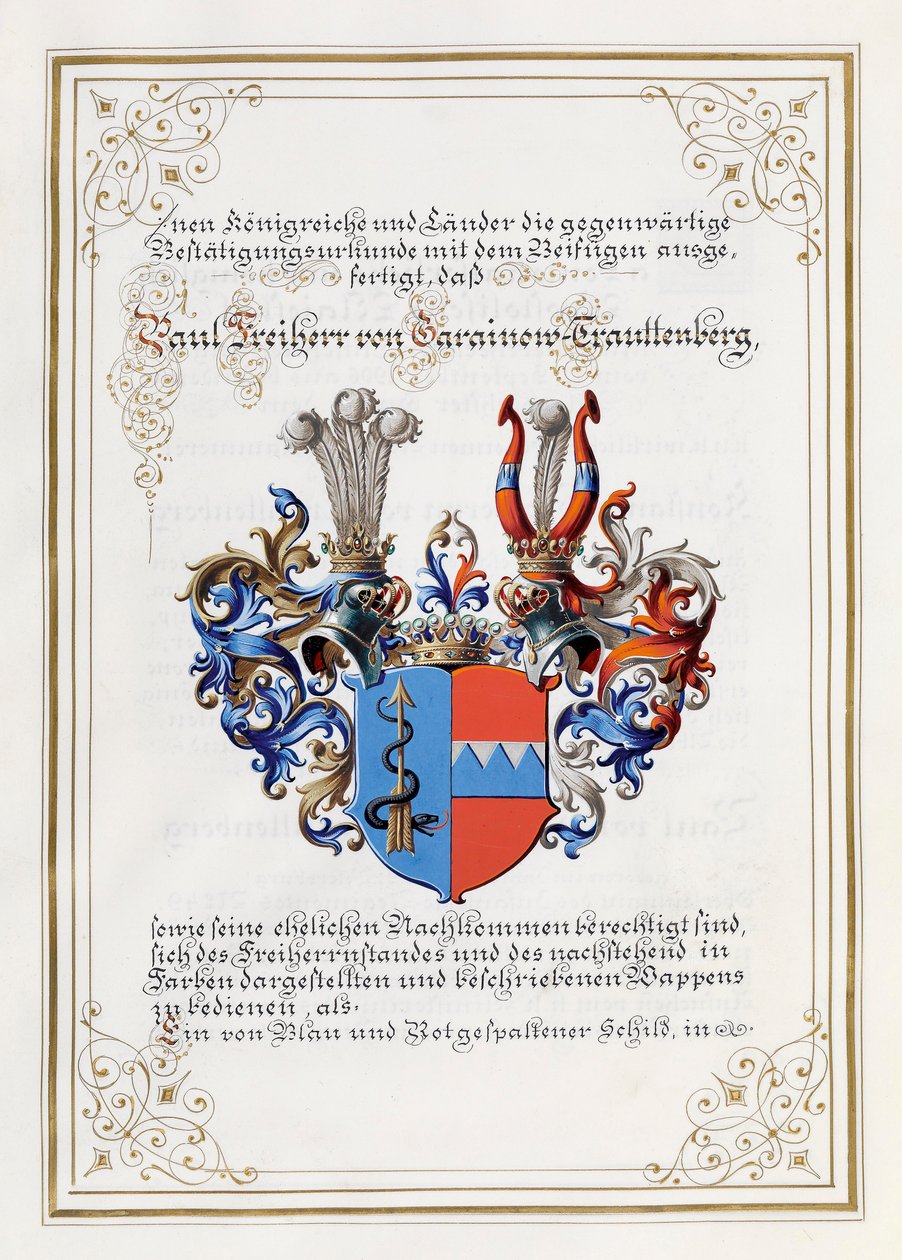 nen Königreiche und Länder die gegenwärtige
Bestätigungsurkunde mit dem Beifügen ausge-
fertigt, daß
Paul Freiherr von Garainow-Trauttenberg,
sowie seine ehelichen Nachkommen berechtigt sind,
sich des Freiherrnstandes und des nachstehend in
Farben dargestellten und beschriebenen Wappens
zu bedienen, als.
Ein von Blau und Rot gespaltener Schild, in